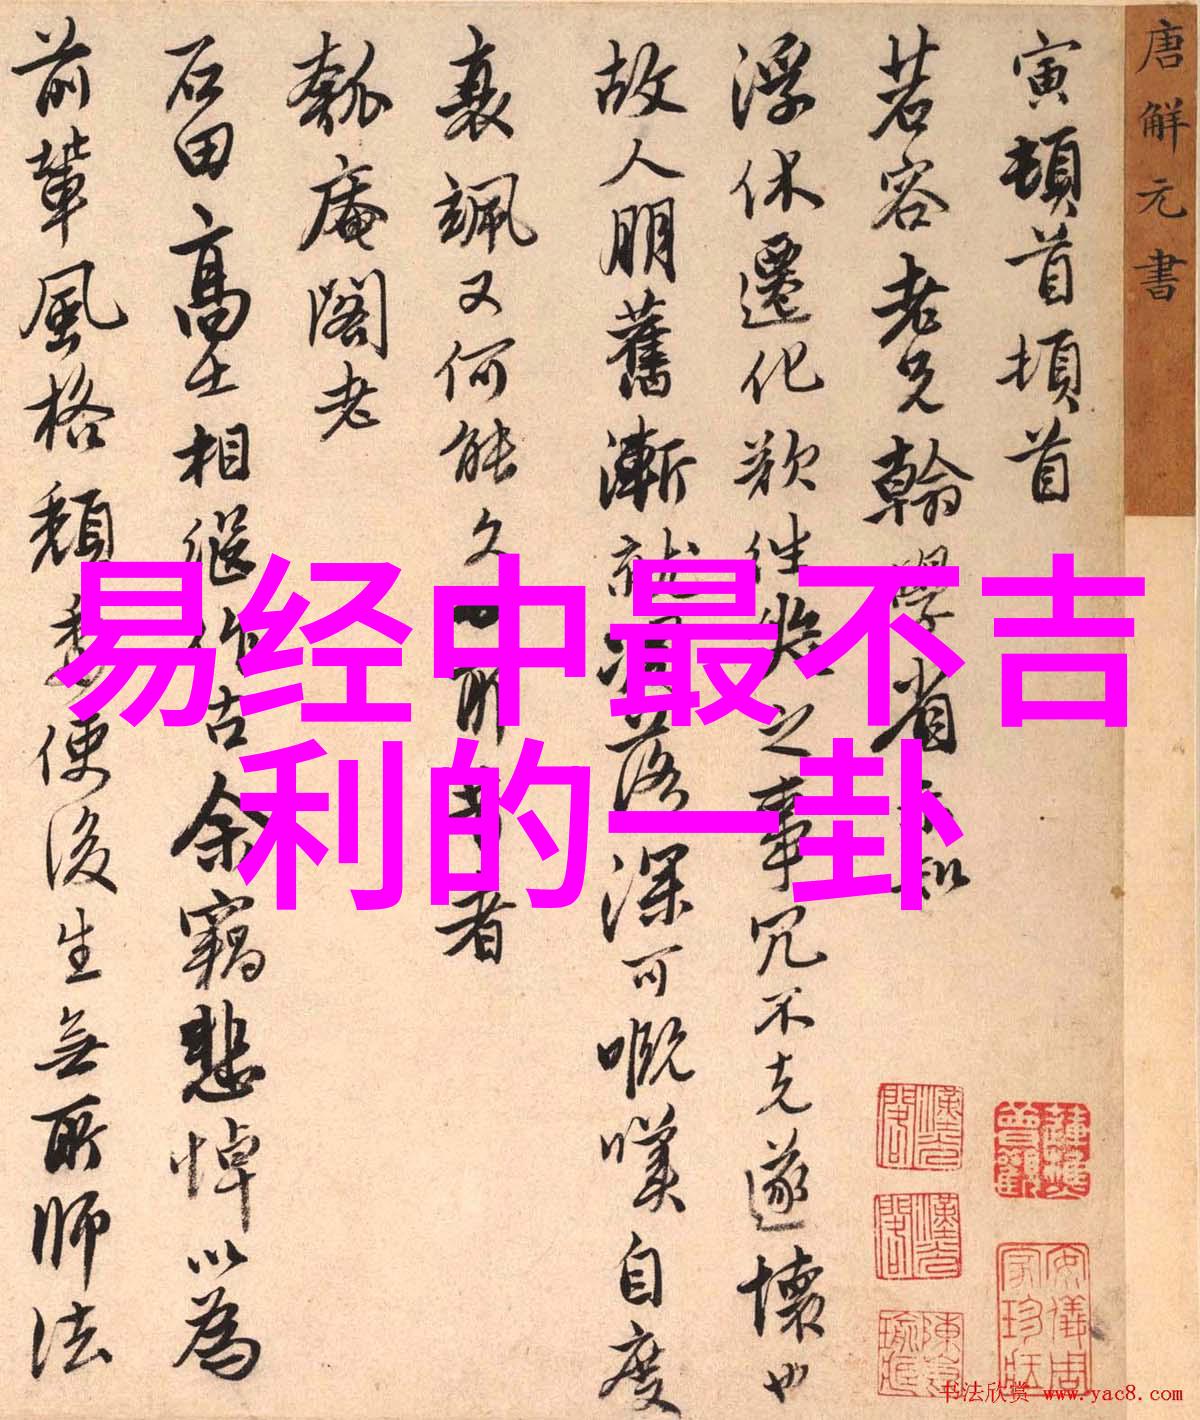 唐解元書
寅頓首頓首
茗容老兄翰學省
浮休遷化欲往臨之事冗不克遂懷也
故人朋舊漸就凋落深可嘅嘆自度
衰颯又何能久
者
瓠庵閣老
石田高士相繼作古余竊悲悼以為
前輩風格頹
便後生無所師法
易经中最不吉
利的一卦
书法欣赏 www.yac8.com